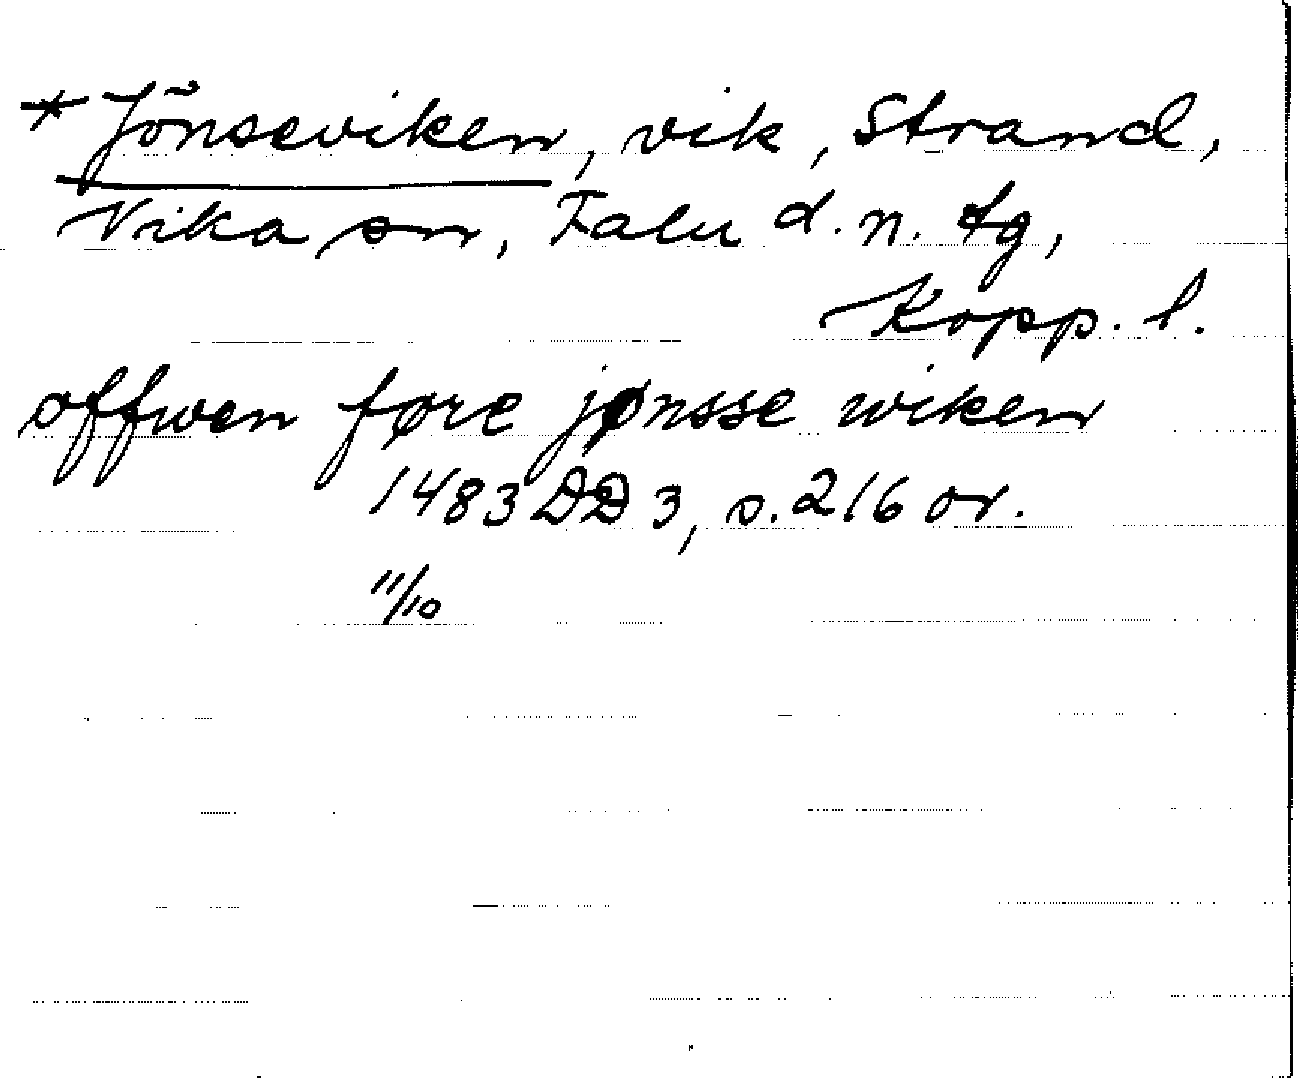 * Jönseviken, vik, Strand,
Vika sn, Falu d. n. tg,
Kopp. l.
offwen føre jønsse wiken
1483 DD 3, s. 216 or.
11/10